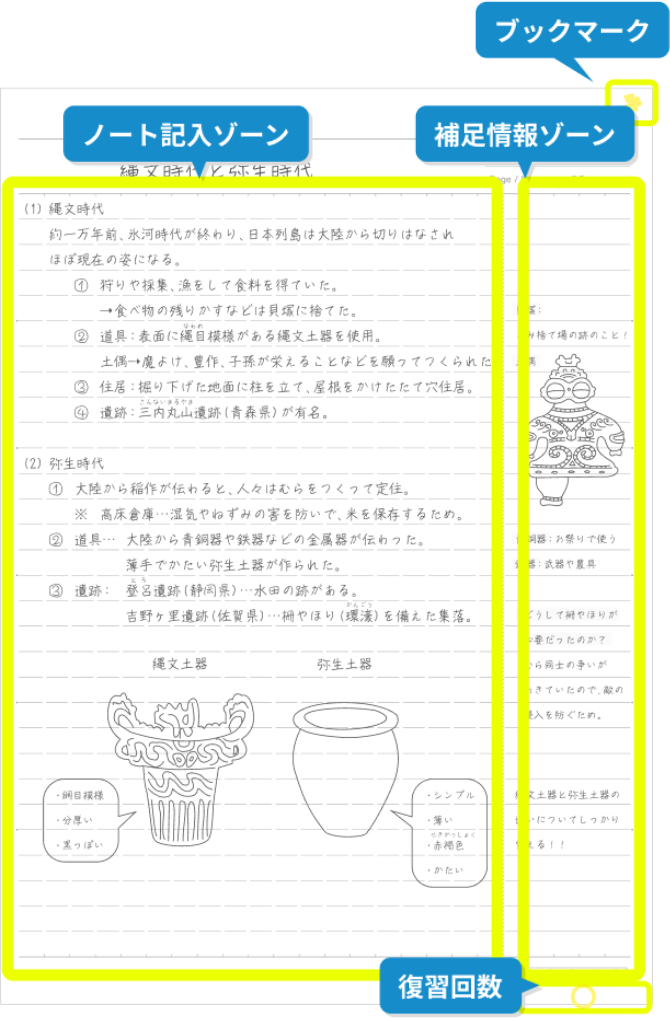 ブックマーク
ノート記入ゾーン
補足情報ゾーン
縄文時代と弥生時代
(1) 縄文時代
約一万年前、氷河時代が終わり、日本列島は大陸から切りはなされ
ほぼ現在の姿になる。
① 狩りや採集、漁をして食料を得ていた。
→食べ物の残りかすなどは貝塚に捨てた。
② 道具:表面に縄目模様がある縄文土器を使用。
土偶→魔よけ、豊作、子孫が栄えることなどを願ってつくられた
③ 住居:掘り下げた地面に柱を立て、屋根をかけたたて穴住居。
④ 遺跡:三内丸山遺跡(青森県)が有名。
(2) 弥生時代
① 大陸から稲作が伝わると、人々はむらをつくって定住。
※ 高床倉庫…湿気やねずみの害を防いで、米を保存するため。
② 道具… 大陸から青銅器や鉄器などの金属器が伝わった。
薄手でかたい弥生土器が作られた。
③ 遺跡: 登呂遺跡(静岡県)…水田の跡がある。
吉野ヶ里遺跡(佐賀県)…柵やほり(環濠)を備えた集落。
縄文土器
弥生土器
・網目模様
・分厚い
・黒っぽい
・シンプル
・薄い
・赤褐色
・かたい
み捨て場の跡のこと!
銅器:お祭りで使う
器:武器や農具
どうして柵やほりが
要だったのか?
むら同士の争いが
きていたので、敵の
侵入を防ぐため。
縄文土器と弥生土器の
いについてしっかり
える!!
復習回数